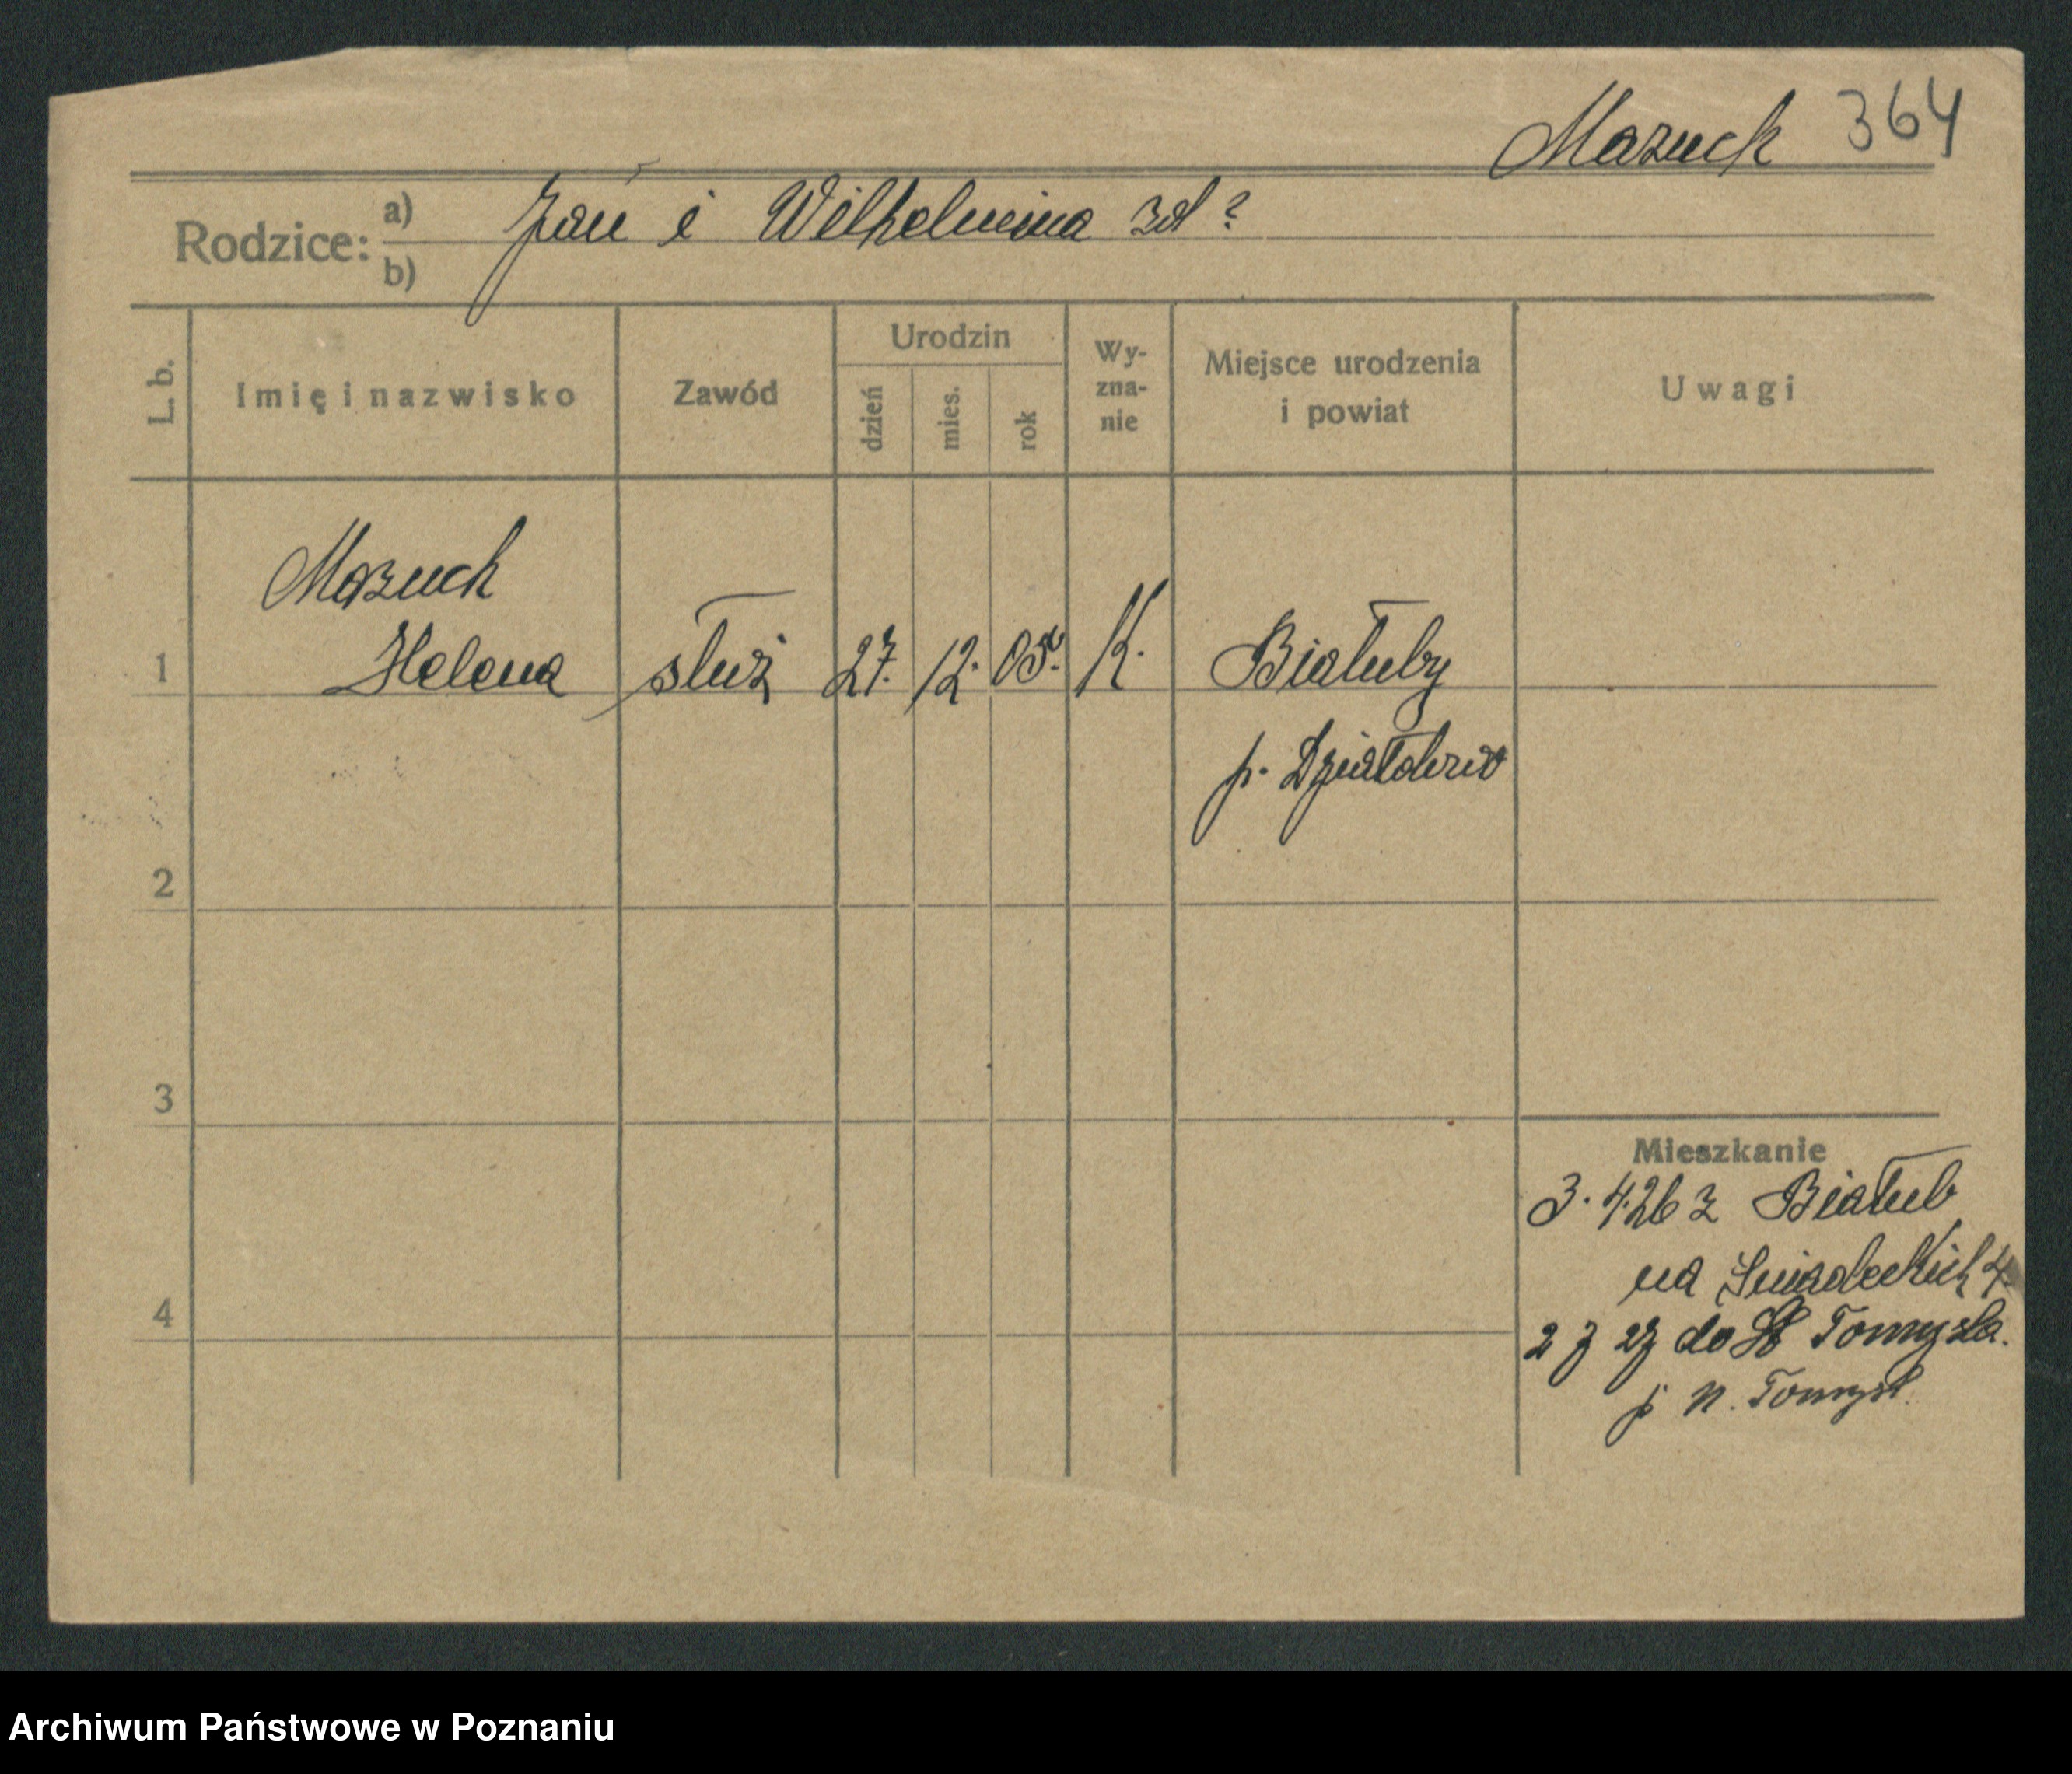 Mazuch 364
Rodzice: a) Jan i Wilhelmina zd ?
b)
L. b. Imię i nazwisko Zawód Urodzin dzień mies. rok Wy-zna-nie Miejsce urodzenia i powiat Uwagi
Mazuch
1 Helena służ 27. 12. 05. K. Białuby
p. Działdowo
2
3
Mieszkanie
3. 4. 26 z Białub
na Śniadeckich 4
4
2 7 27 do St Tomyśla.
p N. Tomyśl.
Archiwum Państwowe w Poznaniu